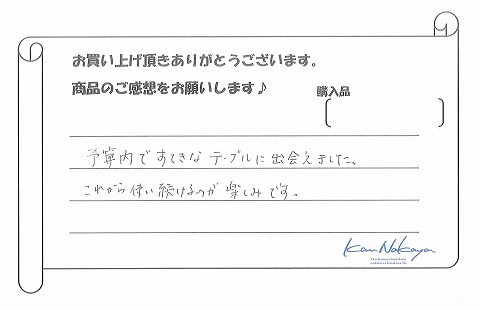 お買い上げ頂きありがとうございます。
商品のご感想をお願いします♪
購入品
予算内ですてきなテーブルに出会えました。
これから使い続けるのが楽しみです。
Kan Nakaya